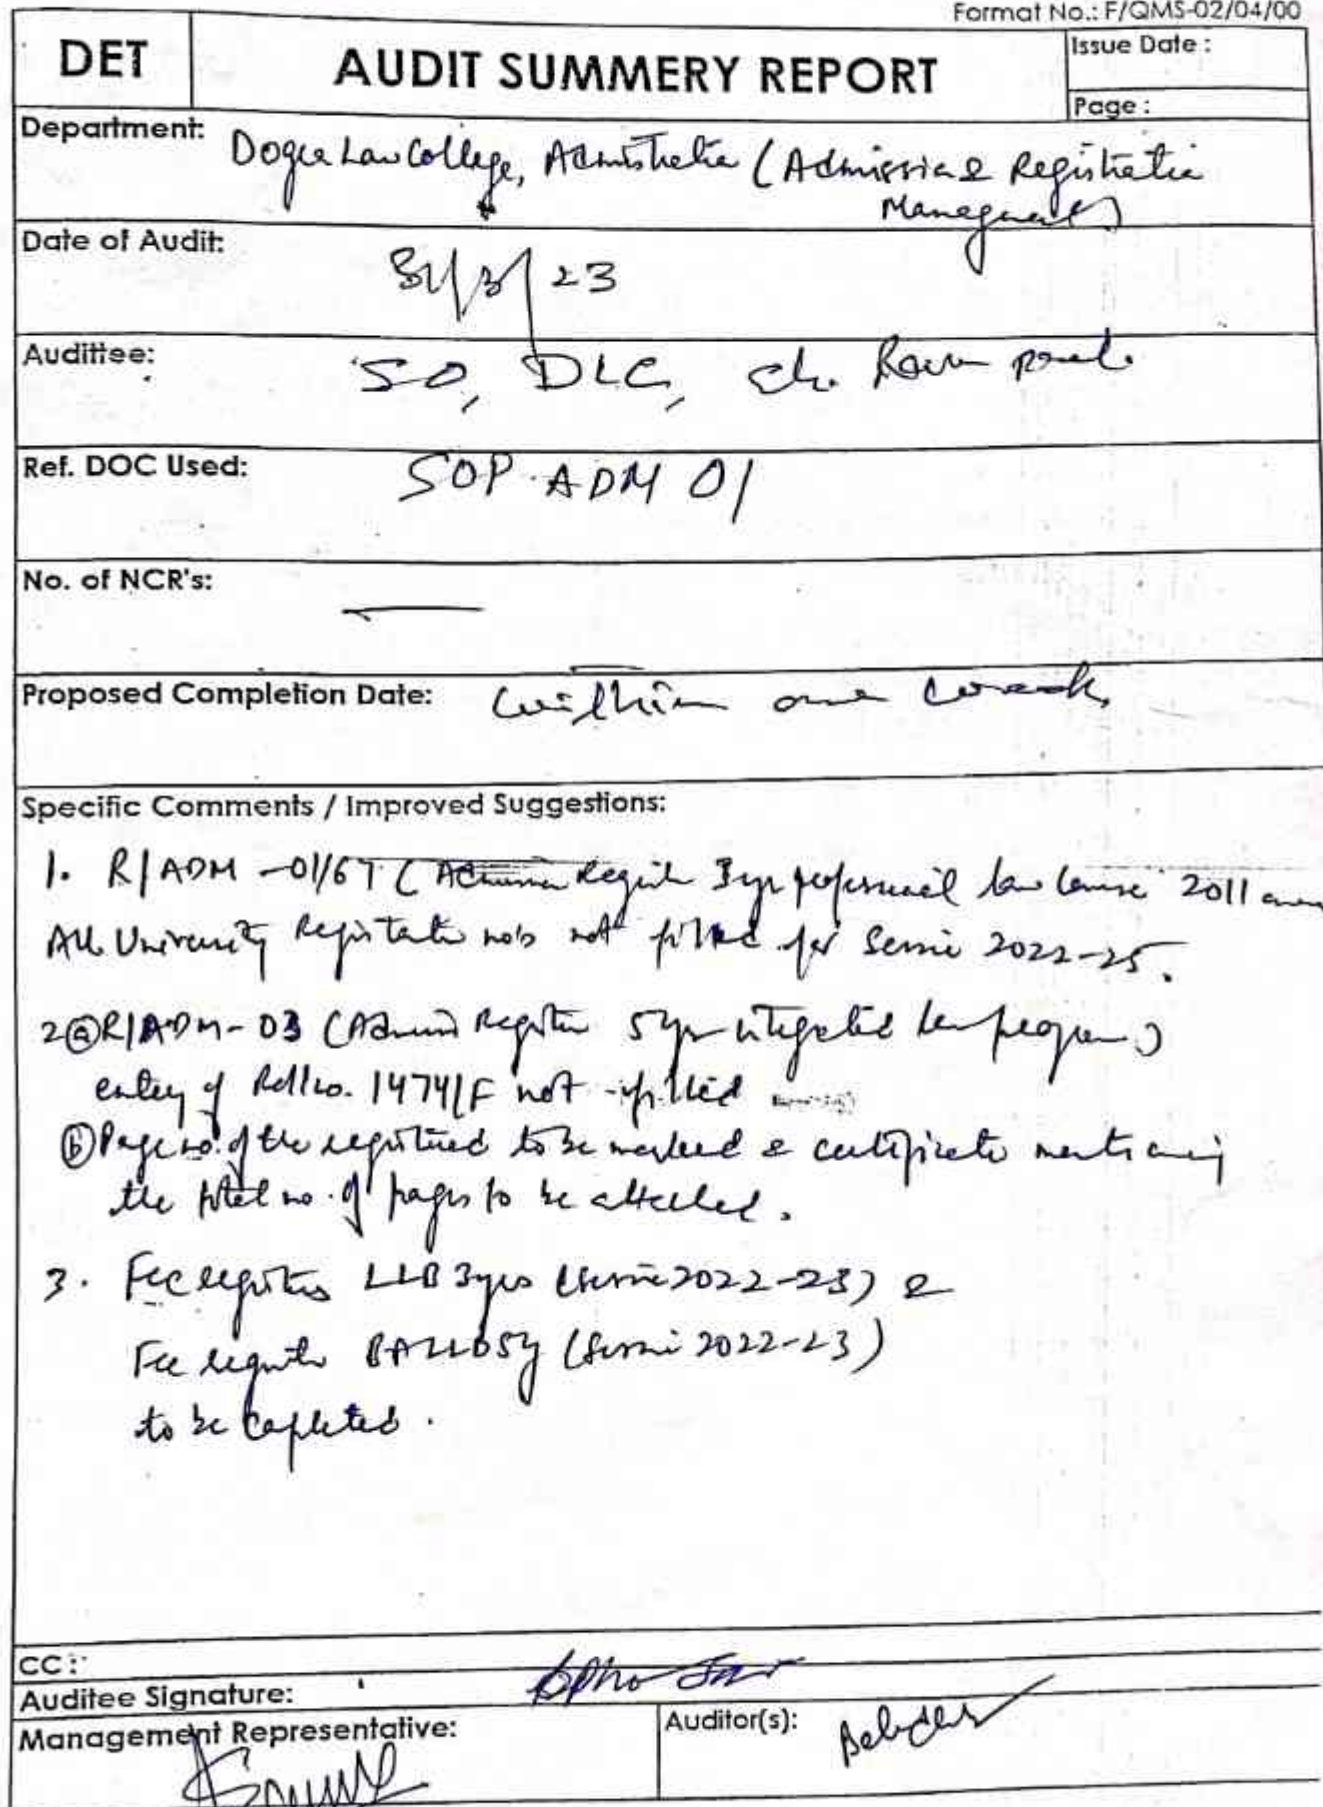 Format No.: F/QMS-02/04/00
DET
AUDIT SUMMERY REPORT
Issue Date :
Page :
Department: Dogra Law College, Administratia (Admission & Registratia
Management)
Date of Audit: 31/3/23
Audittee: SO, DLC, Ch. Ram
Ref. DOC Used: SOP ADM 01
No. of NCR's: —
Proposed Completion Date: within one week
Specific Comments / Improved Suggestions:
1. R/ADM -01/67 ( Register 3yr professional law course 2011
All University Registration no's not filled for Session 2022-25.
2 (a) R/ADM-03 (Admission Register 5yr integrated law program)
entry of Roll no. 1474/F not filled
(b) Page no. of the to be marked & certificate mentioning
the total no. of pages to be attached.
3. Fee register LLB 3yrs (Session 2022-23) &
Fee register BALLB 5y (Session 2022-23)
to be completed.
CC :
Auditee Signature:
Management Representative:
Auditor(s):